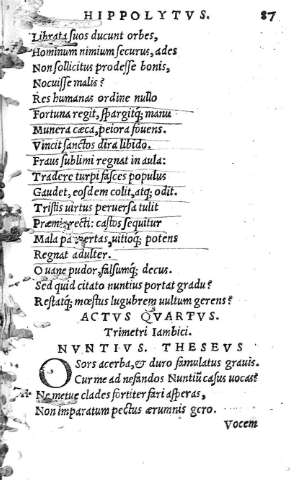 HIPPOLYTVS. 87
Librata suos ducunt orbes,
Hominum nimium securus, ades
Non sollicitus prodesse bonis,
Nocuisse malis?
Res humanas ordine nullo
Fortuna regit, spargitq; manu
Munera cæca, peiora fouens.
Vincit sanctos dira libido.
Fraus sublimi regnat in aula:
Tradere turpi fasces populus
Gaudet, eosdem colit, atq; odit.
Tristis uirtus peruersa tulit
Præmia recti: castos sequitur
Mala paupertas, uitioq; potens
Regnat adulter.
O uane pudor, falsumq; decus.
Sed quid citato nuntius portat gradu?
Restatq; mœstus lugubrem uultum gerens?
ACTVS QVARTVS.
Trimetri Iambici.
NVNTIVS. THESEVS
O Sors acerba, & duro famulatus grauis.
Cur me ad nefandos Nuntiū casus uocas?
Ne metue clades fortiter fari asperas,
Non imparatum pectus ærumnis gero.
Vocem